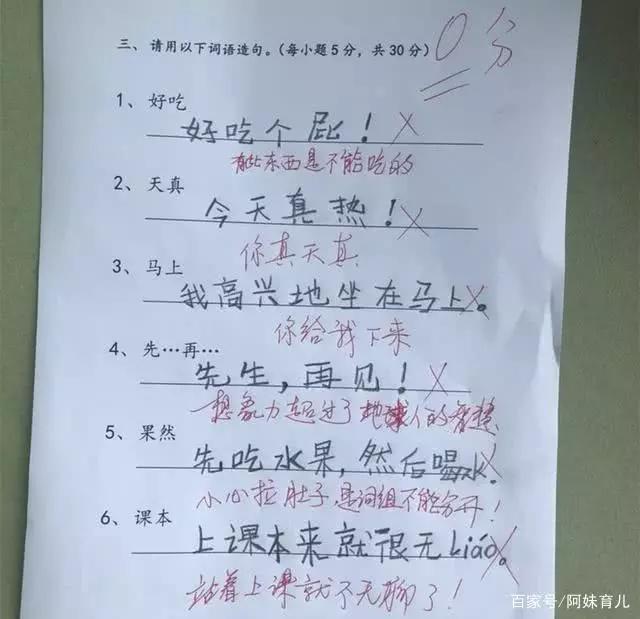 三、请用以下词语造句。(每小题5分，共30分)
0分
1、好吃
好吃个屁！×
有些东西是不能吃的
2、天真
今天真热！×
你真天真
3、马上
我高兴地坐在马上。×
你给我下来
4、先…再…
先生，再见！×
想象力超过了地球人的智慧
5、果然
先吃水果，然后喝水。×
小心拉肚子，是词组不能分开！
6、课本
上课本来就很无liáo。×
站着上课就不无聊了！
百家号/阿妹育儿